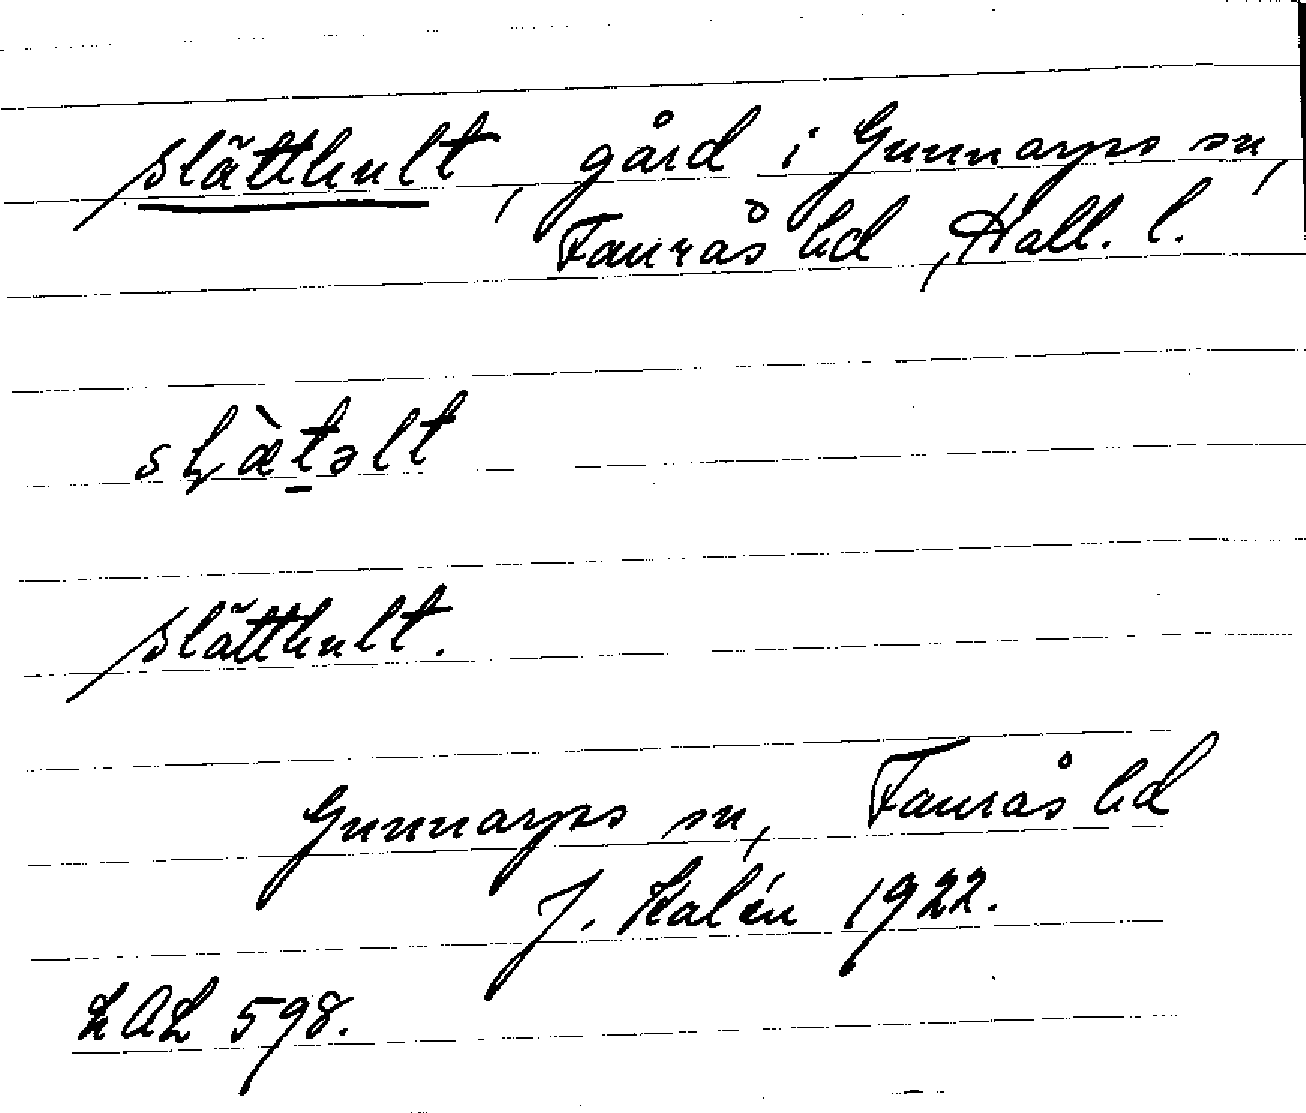 Slätthult, gård i Gunnarps sn,
Faurås hd, Hall. l.
slätəlt
Slätthult.
Gunnarps sn, Faurås hd
J. Kalén 1922.
LAL 598.